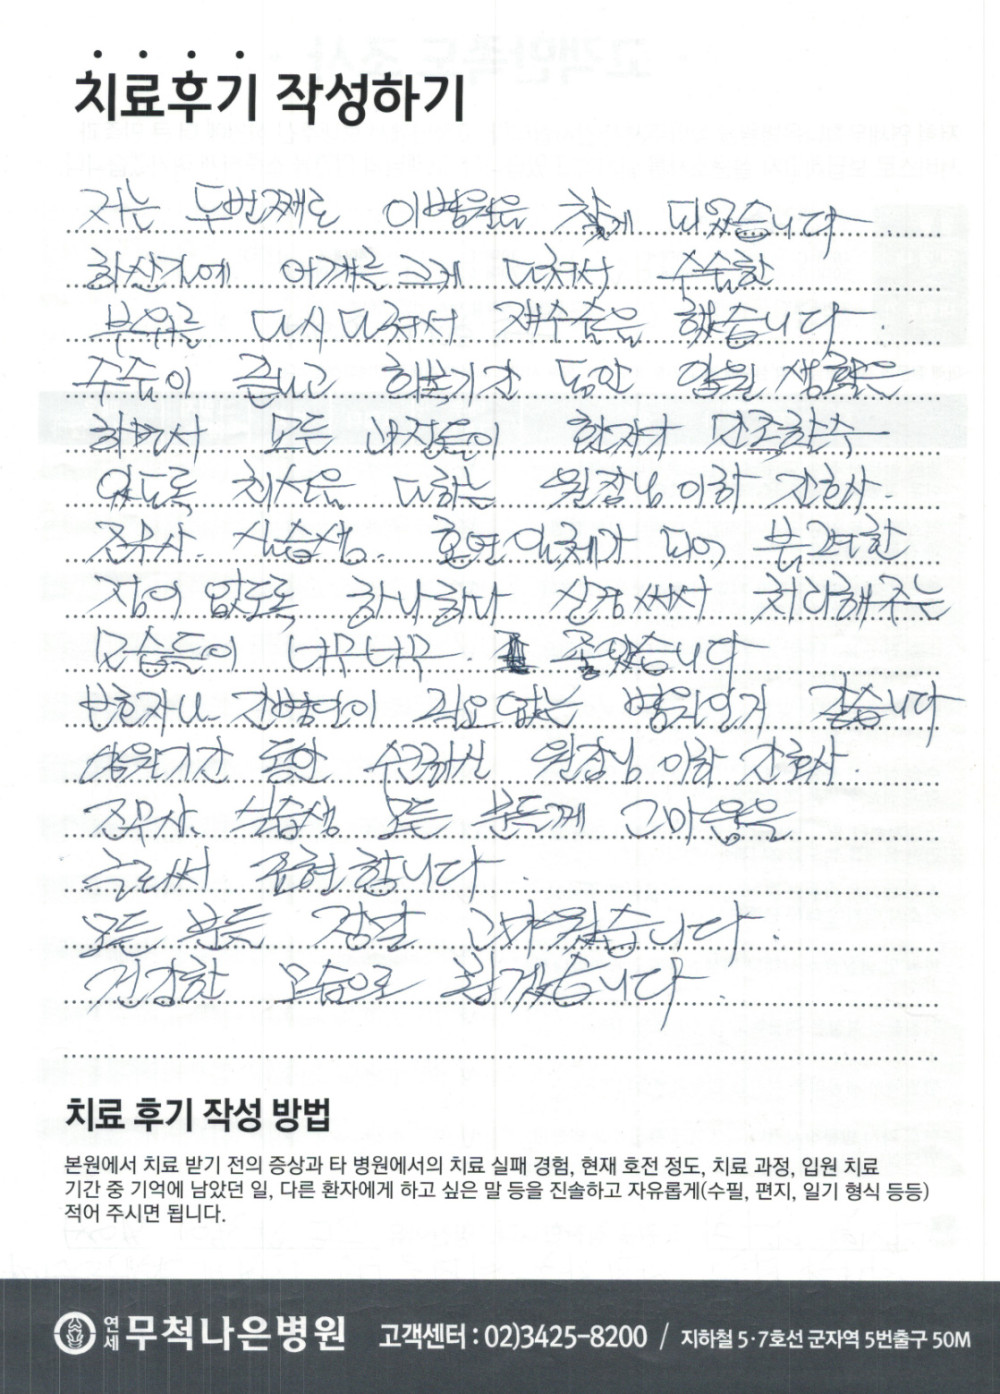 치료후기 작성하기
저는 두번째로 이병원을 찾게 되었습니다
화산가에 어깨를 크게 다쳐서 수술한
부위를 다시 다쳐서 재수술을 했습니다.
수술이 끝나고 회복기간 동안 입원 생활은
하면서 모든 과정들이 환자가 만족할수
있도록 최선을 다하는 원장님 이하 간호사.
조무사. 실습생. 혼연일체가 되어 불편한
점이 없도록 하나하나 신경써서 치료해주는
모습들이 너무너무 좋았습니다
보호자나 간병인이 필요없는 병원인거 같습니다
입원기간 동안 수고하신 원장님 이하 간호사
조무사. 실습생 모든 분들께 고마움을
글로써 표현합니다.
모든 분들 정말 고마웠습니다.
건강한 모습으로 뵙겠습니다.
치료 후기 작성 방법
본원에서 치료 받기 전의 증상과 타 병원에서의 치료 실패 경험, 현재 호전 정도, 치료 과정, 입원 치료
기간 중 기억에 남았던 일, 다른 환자에게 하고 싶은 말 등을 진솔하고 자유롭게(수필, 편지, 일기 형식 등등)
적어 주시면 됩니다.
연세 무척나은병원 고객센터 : 02)3425-8200 / 지하철 5·7호선 군자역 5번출구 50M